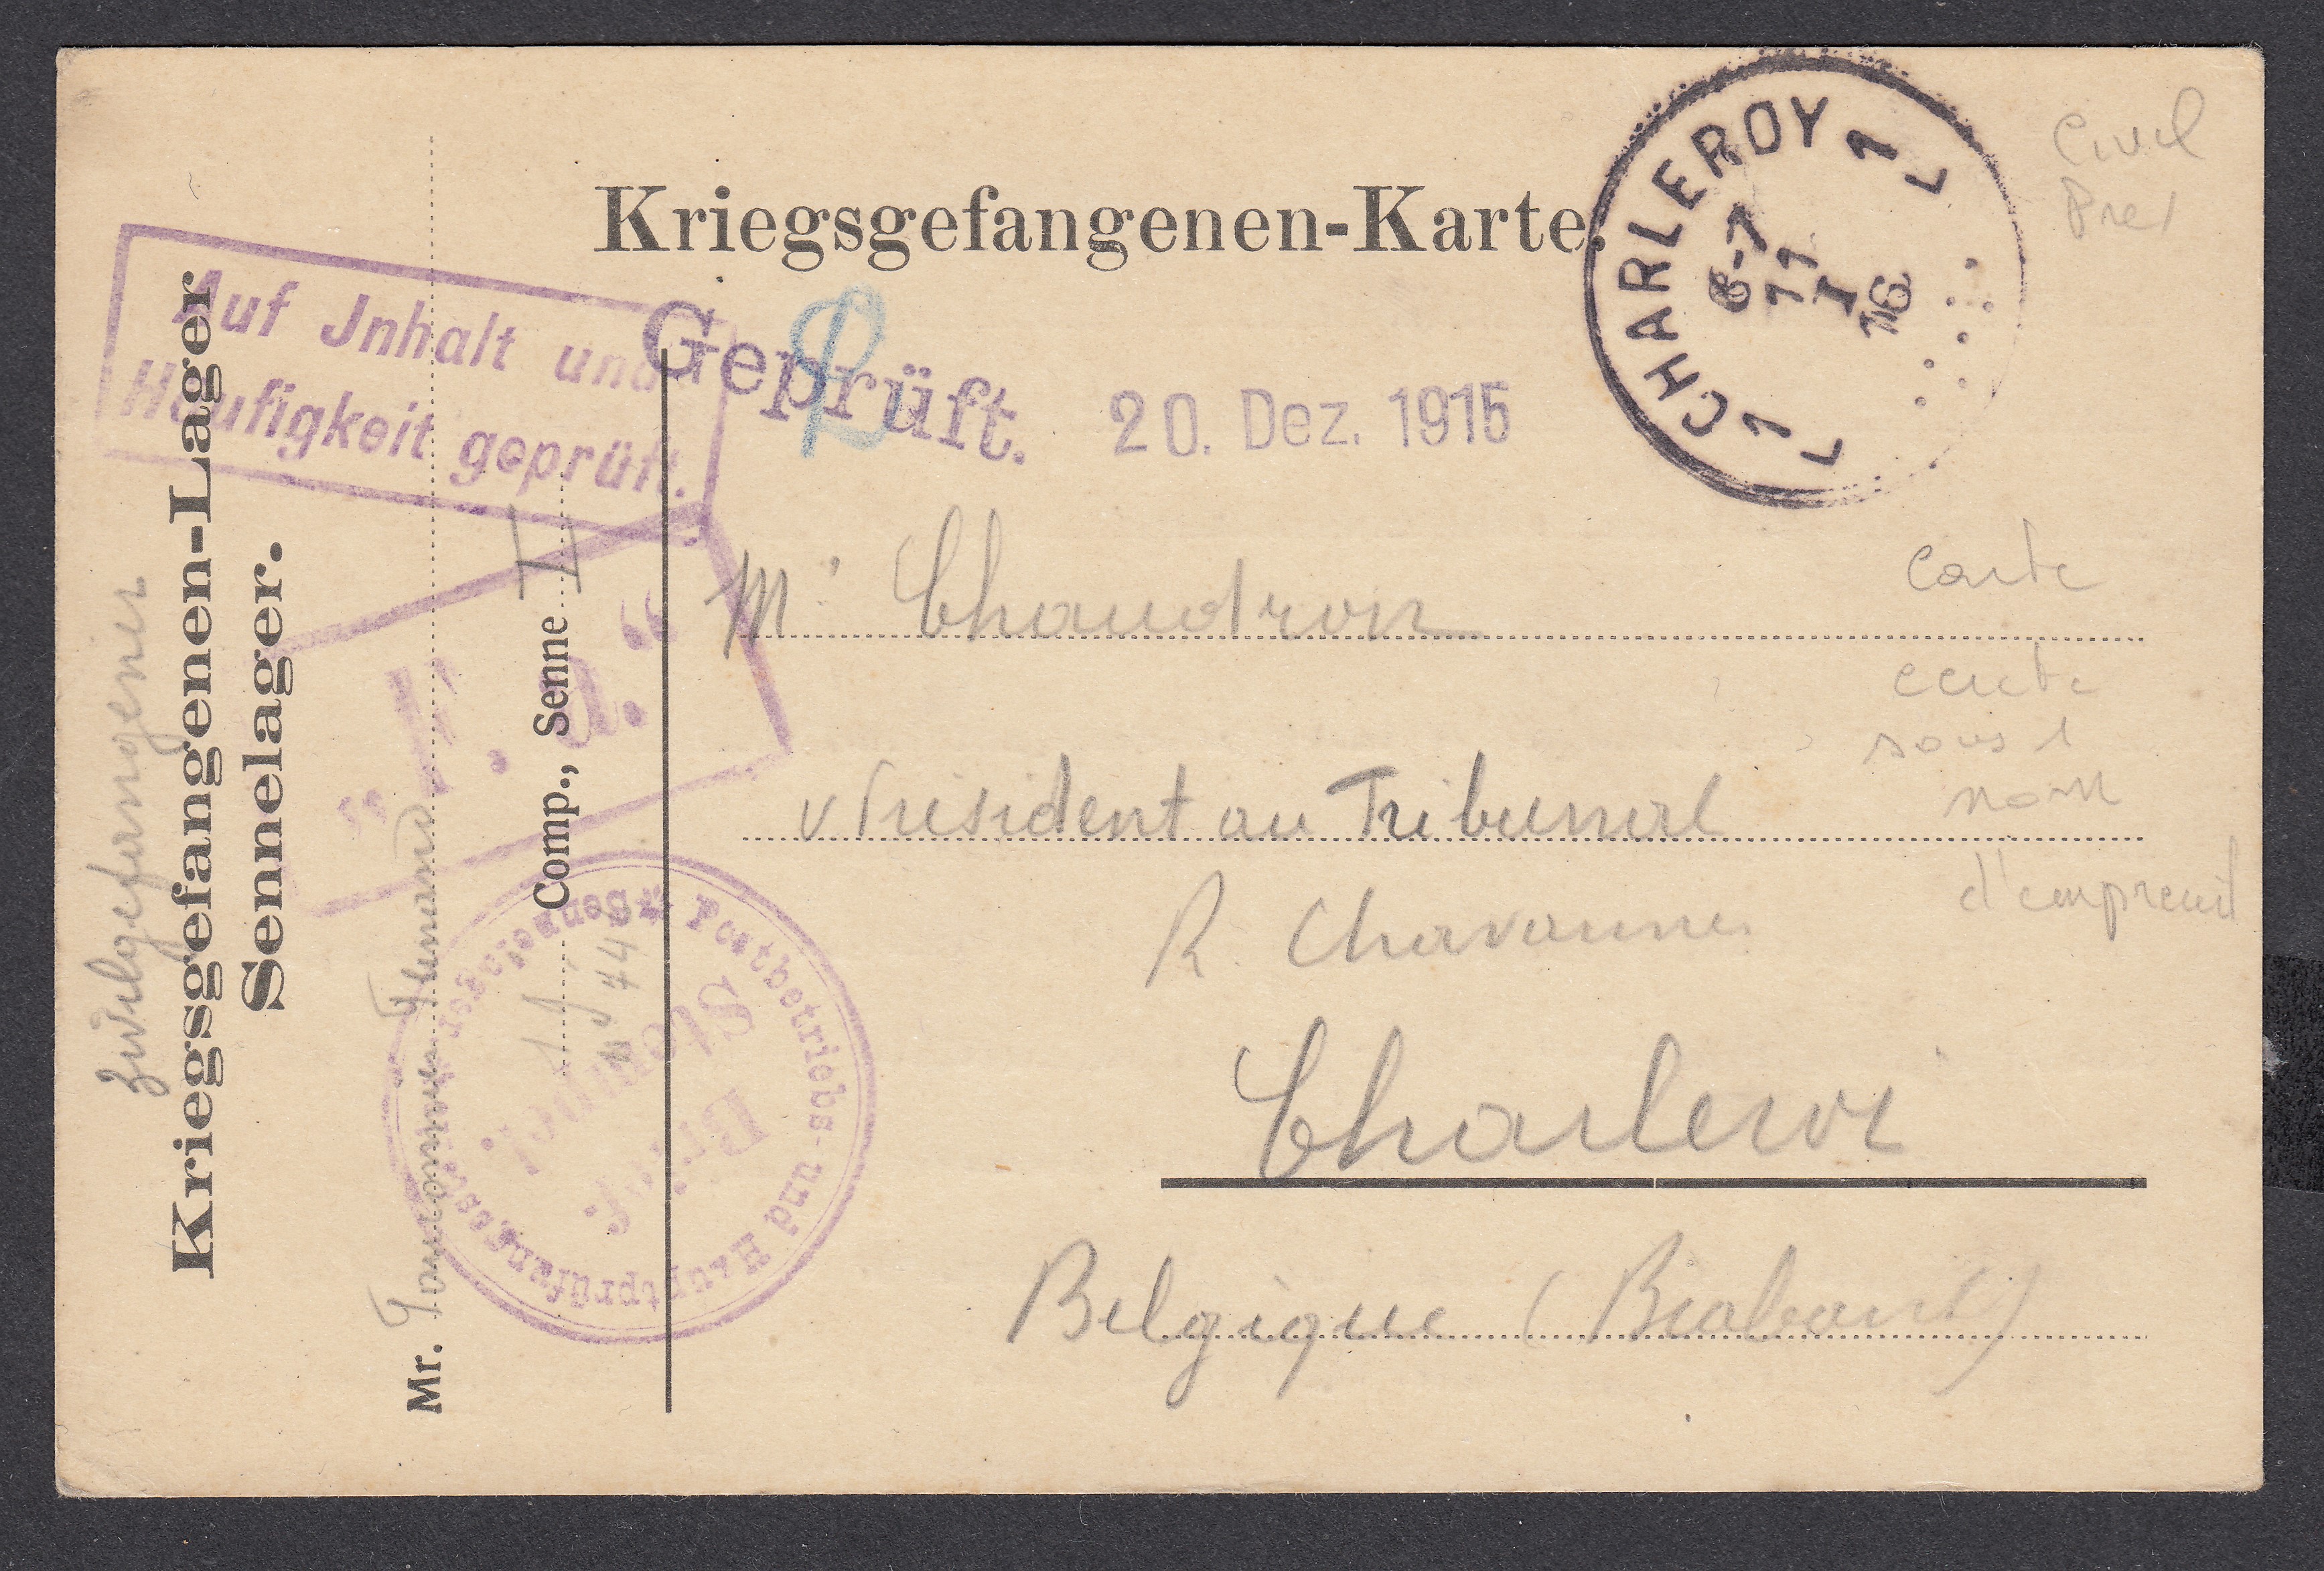 Kriegsgefangenen-Karte.
CHARLEROY 1
1
6-7
11
I
16
Civil
Auf Jnhalt und
Häufigkeit geprüft.
Geprüft.
20. Dez. 1915
Mr Chaudron
Président au Tribunal
R. Chavannes
Charleroi
Belgique (Brabant)
carte
écrite
sous 1
nom
d'emprunt
Zivilgefangener
Kriegsgefangenen-Lager
Sennelager.
Mr. Fernand
Comp., Senne II
„F. a."
Postbetriebs- und Hauptprüfungs
Sennelager
Brief-
Stempel.